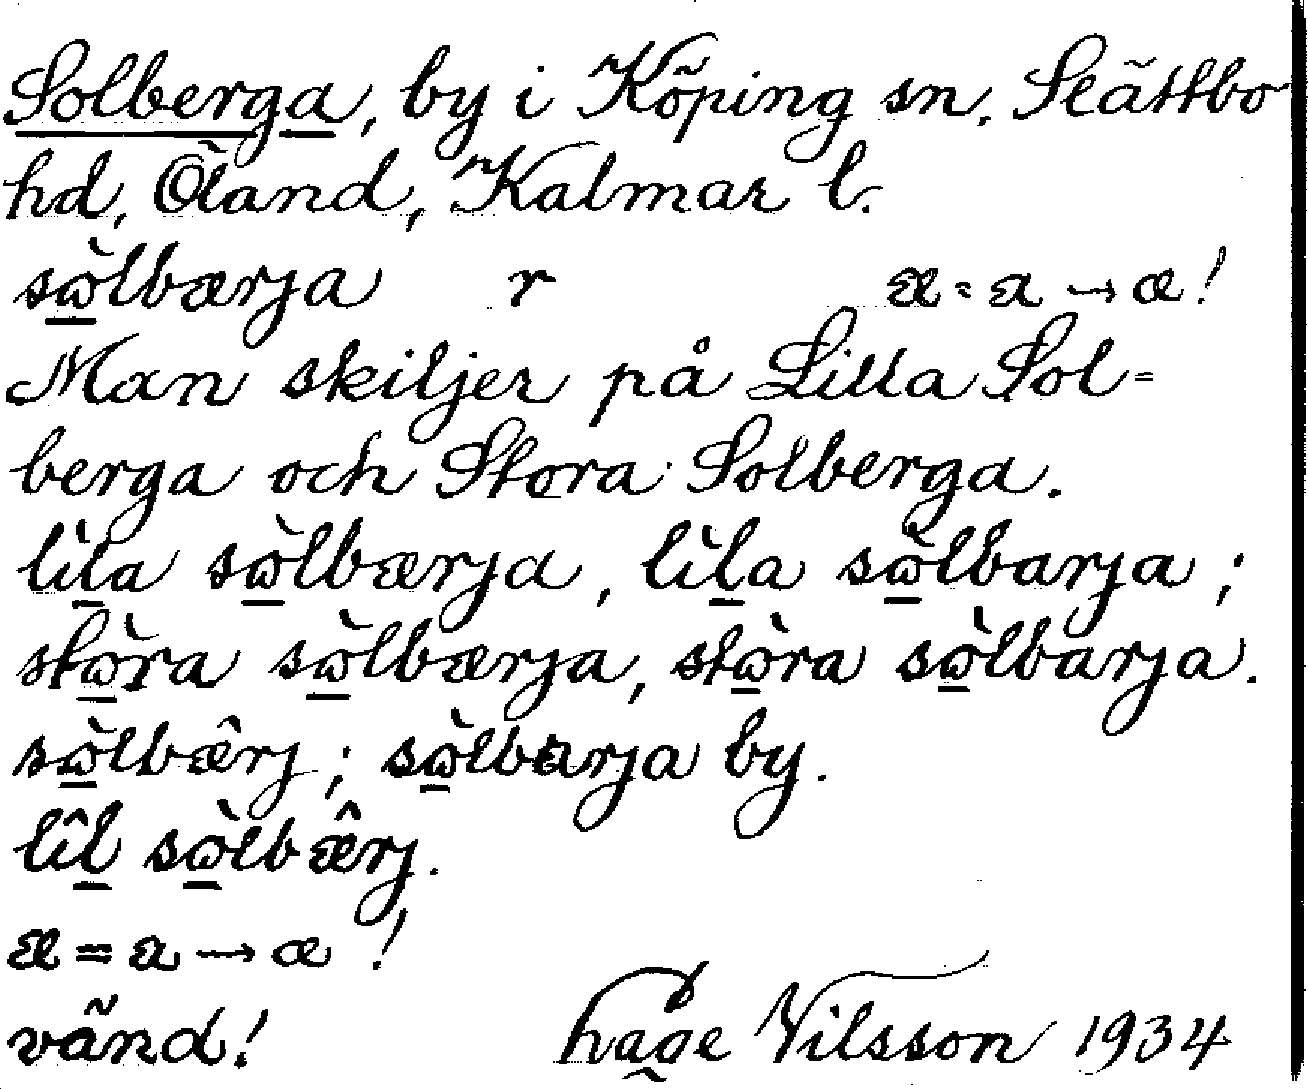 Solberga, by i Köping sn. Slättbo
hd, Öland, Kalmar l.
sὼ̲lbærja r æ = a → œ!
Man skiljer på Lilla Sol=
berga och Stora Solberga.
lìl̲a sὼ̲lbærja, lìl̲a sὼ̲lbarja;
stὼ̲ra sὼ̲lbærja, stὼ̲ra sὼ̲lbarja.
sὼ̲lbæ̂rj; sὼ̲lbarja by.
lîl̲ sὼ̲lbæ̂rj.
æ = a → œ!
vänd! Nilsson 1934